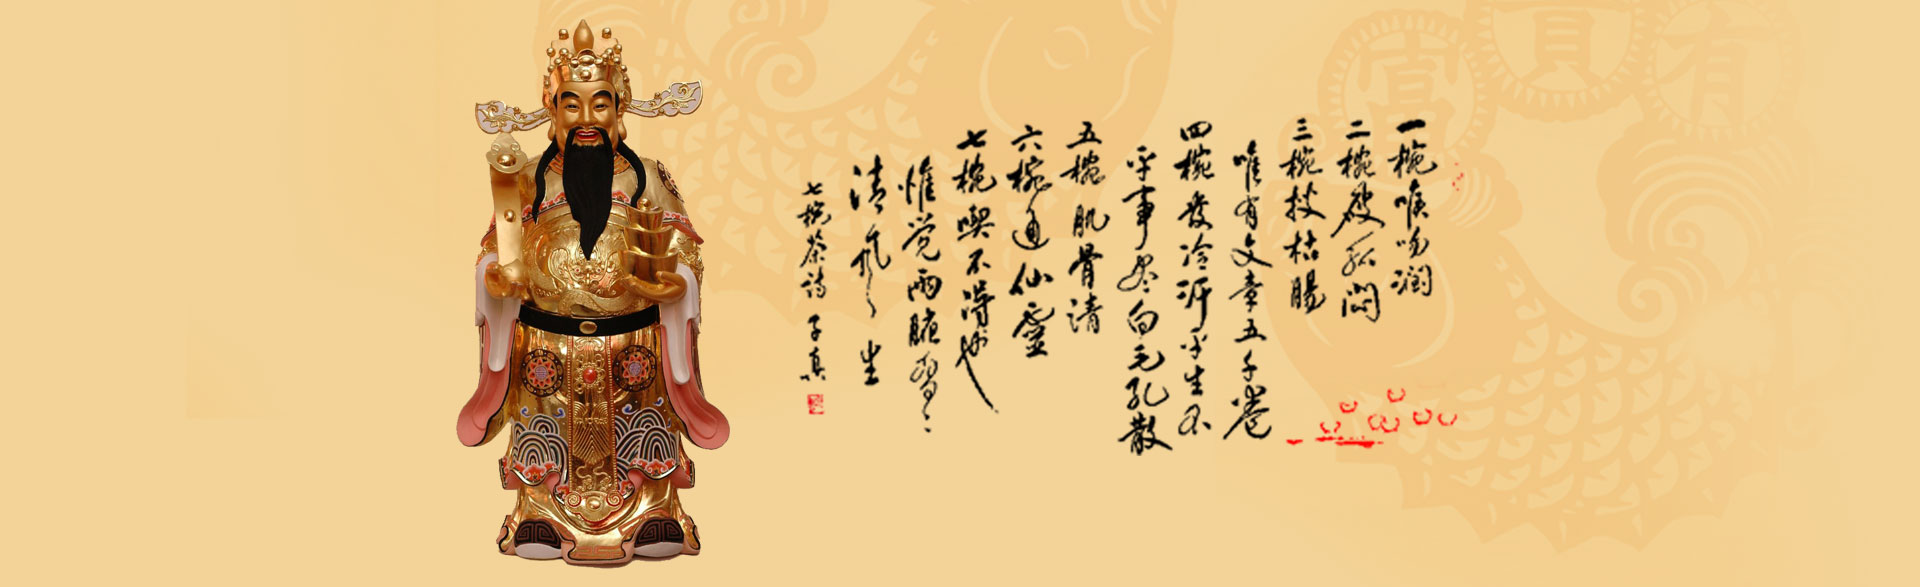 一椀喉吻潤
二椀破孤悶
三椀搜枯腸
唯有文章五千卷
四椀發冷汗平生不
平事尽向毛孔散
五椀肌骨清
六椀通仙靈
七椀喫不得也
惟覺兩腋習々
清風々生
七椀茶詩 子真
有